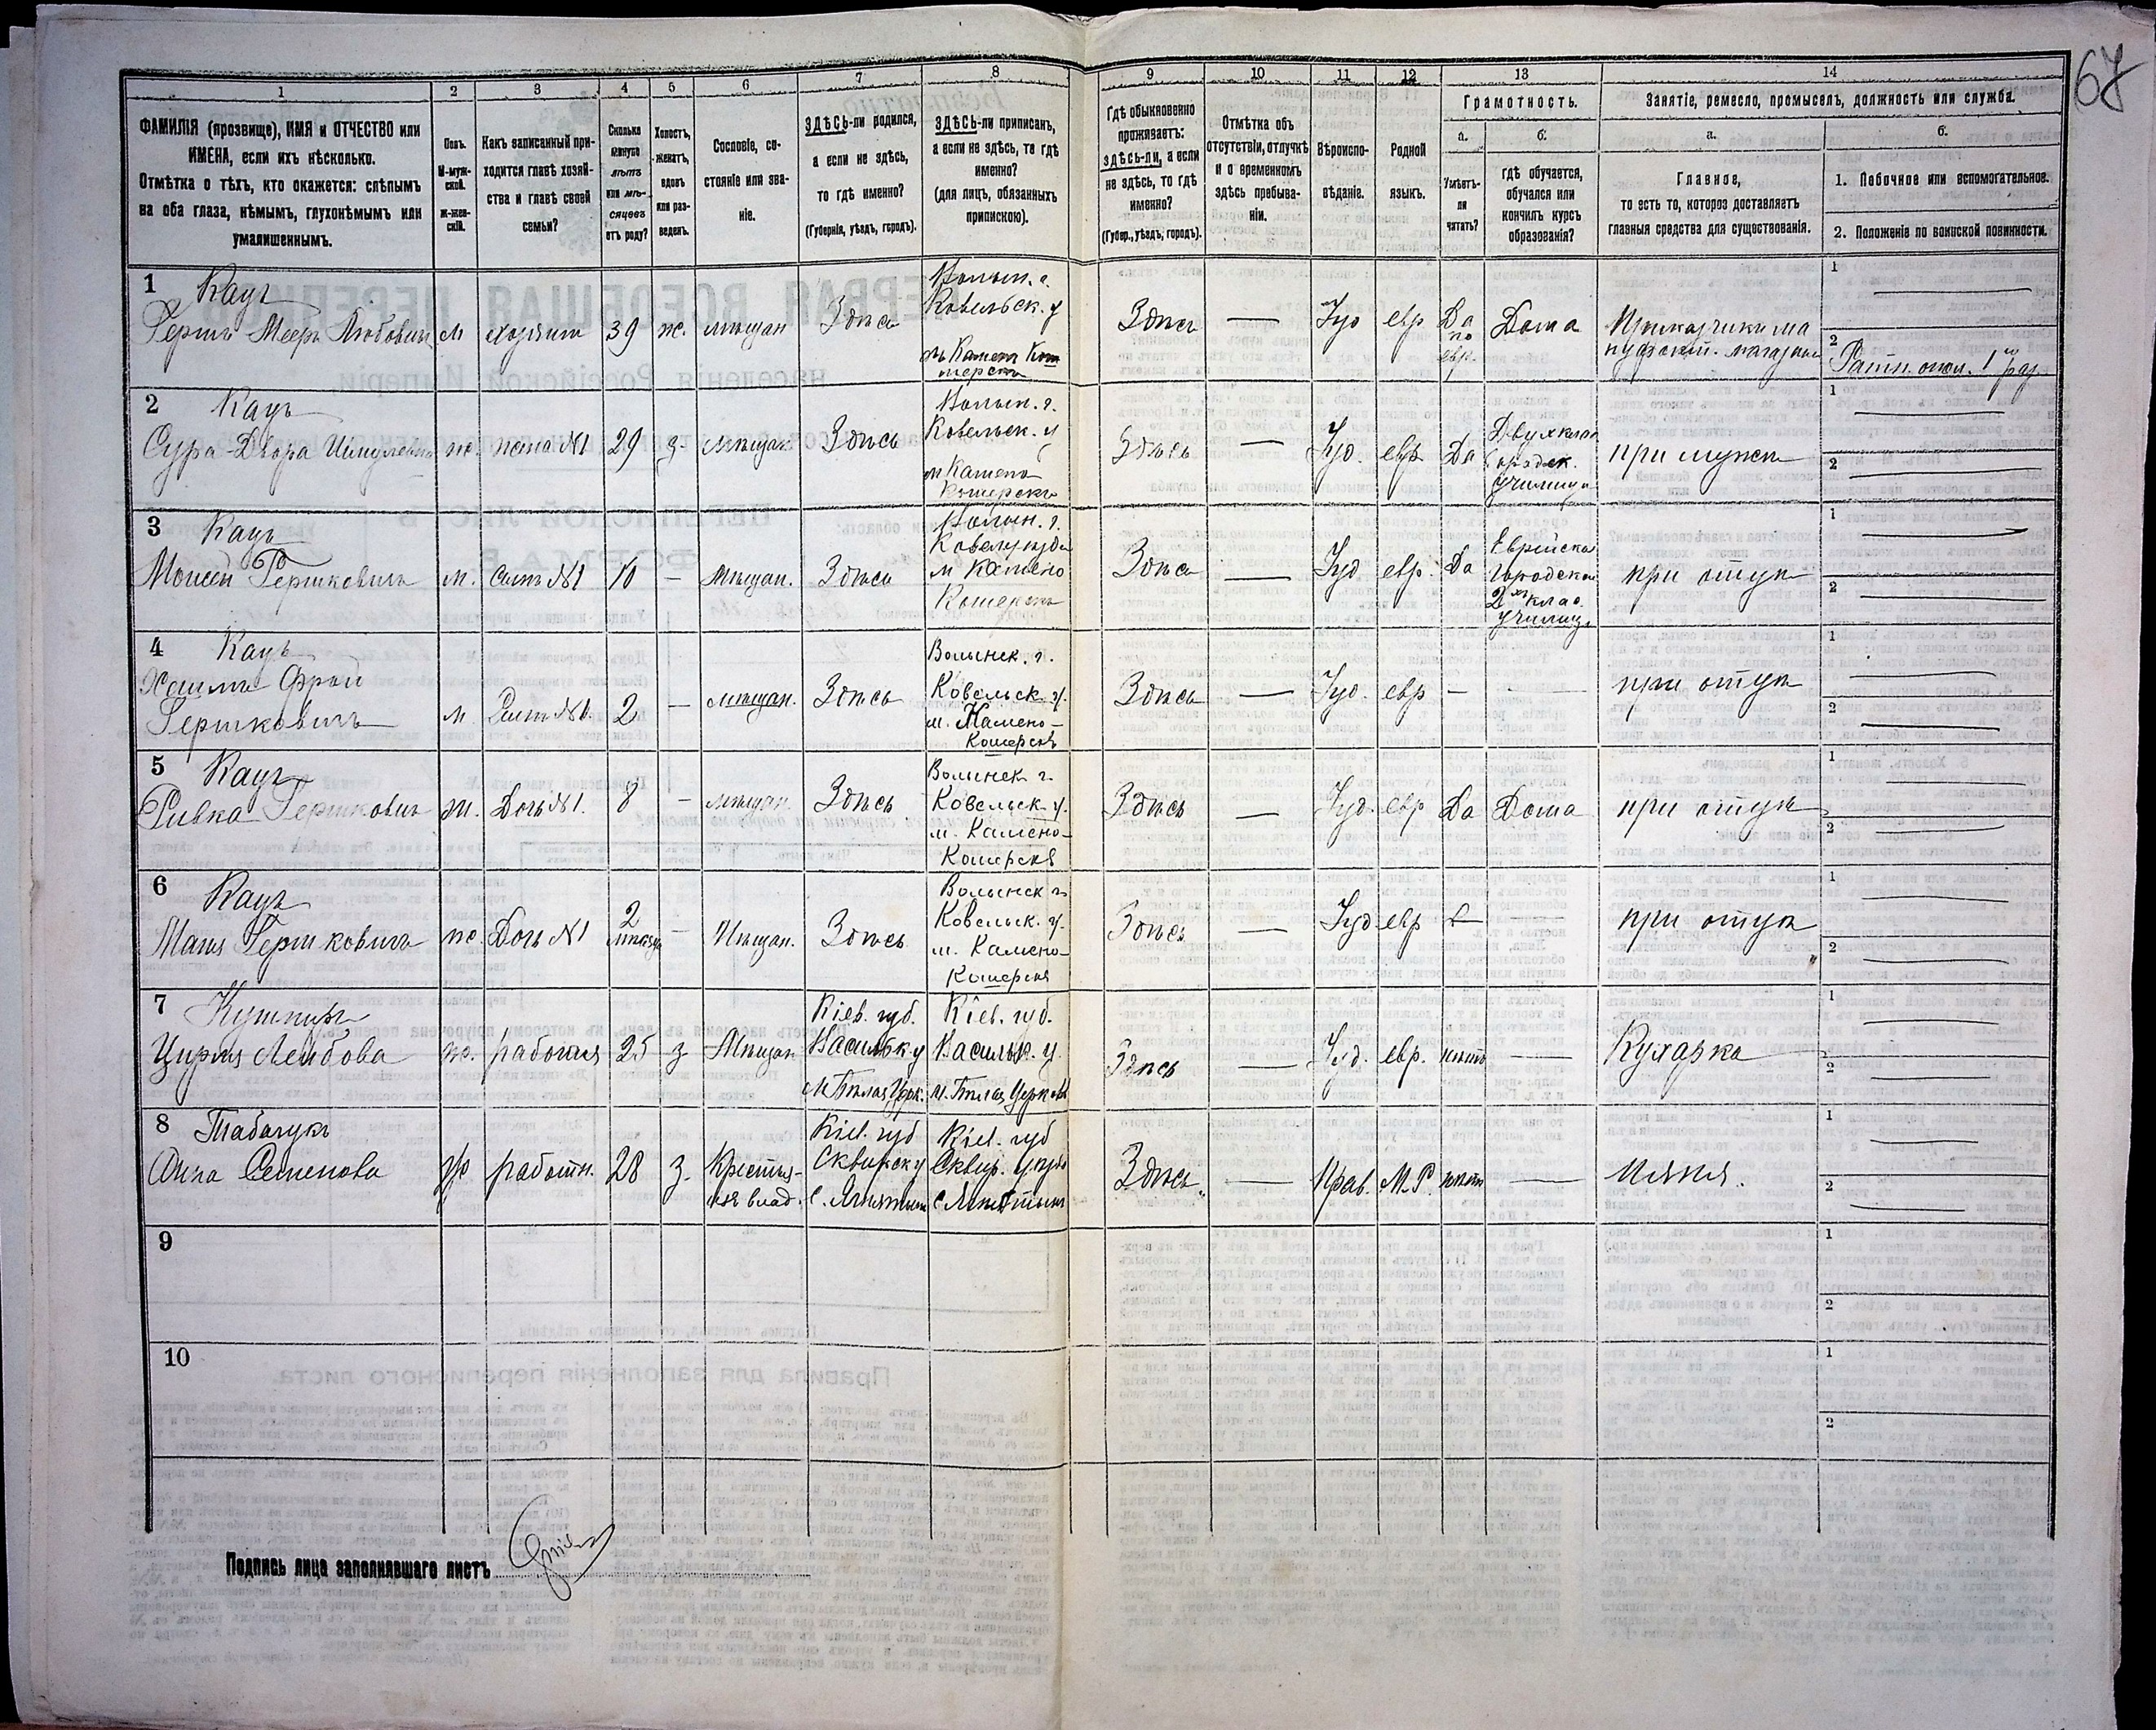 67
1 2 3 4 5 6 7 8 9 10 11 12 13 14
ФАМИЛІЯ (прозвище), ИМЯ и ОТЧЕСТВО или
ИМЕНА, если ихъ нѣсколько.
Отмѣтка о тѣхъ, кто окажется: слѣпымъ
на оба глаза, нѣмымъ, глухонѣмымъ или
умалишеннымъ.
Полъ.
М-муж-
ской.
ж-жен-
скій.
Какъ записанный при-
ходится главѣ хозяй-
ства и главѣ своей
семьи?
Сколько
минуло
лѣтъ
или мѣ-
сяцевъ
отъ роду?
Холостъ,
женатъ,
вдовъ
или раз-
веденъ.
Сословіе, со-
стояніе или зва-
ніе.
ЗДѢСЬ-ли родился,
а если не здѣсь,
то гдѣ именно?
(Губернія, уѣздъ, городъ).
ЗДѢСЬ-ли приписанъ,
а если не здѣсь, то гдѣ
именно?
(для лицъ, обязанныхъ
припискою).
Гдѣ обыкновенно
проживаетъ:
здѣсь-ли, а если
не здѣсь, то гдѣ
именно?
(Губер., уѣздъ, городъ).
Отмѣтка объ
отсутствіи, отлучкѣ
и о временномъ
здѣсь пребыва-
ніи.
Вѣроиспо-
вѣданіе.
Родной
языкъ.
Грамотность.
а.
Умѣетъ-
ли
читать?
б.
гдѣ обучается,
обучался или
кончилъ курсъ
образованія?
Занятіе, ремесло, промыселъ, должность или служба.
а.
Главное,
то есть то, которое доставляетъ
главныя средства для существованія.
б.
1. Побочное или вспомогательное.
2. Положеніе по воинской повинности.
1
Кацъ
Гершъ Мееръ Лейбовичъ
м
хозяинъ
39
ж.
мѣщан
Здѣсь
Волын. г.
Ковельск. у
м. Камень Ко-
шерскъ
Здѣсь
—
Іуд
евр
Да
по
евр.
Дома
Прикащикъ на
магазинѣ
1
2
Ратн. опол. 1го раз.
2
Кацъ
Сура-Двора
ж.
жена №1
29
з.
мѣщан
Здѣсь
Волын. г.
Ковельск. у
м Камень
Кошерскъ
Здѣсь
—
Іуд.
евр
Да
Двухклас
Городск.
училище
при мужѣ
1
2
3
Кацъ
Моисей Гершковичъ
м.
Сынъ №1
10
—
Мѣщан.
Здѣсь
Волын. г.
Ковел. уѣзда
м Камено
Кошерскъ
Здѣсь
—
Іуд
евр.
Да
Еврейское
Городское
2хъ клас.
училищ.
при отцѣ
1
2
4
Кацъ
Хаимъ Фроим
Гершковичъ
м.
Сынъ №1.
2
—
мѣщан.
Здѣсь
Волынск. г.
Ковельск. у.
м. Камено-
Кошерскъ
Здѣсь
—
Іуд.
евр
—
—
при отцѣ
1
2
5
Кацъ
Ривка Гершковичъ
ж.
Дочь №1.
8
—
мѣщан.
Здѣсь
Волынск г.
Ковельск. у.
м. Камено-
Кошерскъ
Здѣсь
—
Іуд.
евр
Да
Дома
при отцѣ
1
2
6
Кацъ
Маня Гершковичъ
ж.
Дочь №1
2
мѣсяца
—
Мѣщан.
Здѣсь
Волынск г.
Ковельск. у.
м. Камено-
Кошерскъ
Здѣсь
—
Іуд
евр
—
—
при отцѣ
1
2
7
Цирля Лейбова
ж.
работая
25
з.
Мѣщан
Кіев. губ.
Васильк у
М Бѣлая Церк.
Кіев. губ.
Васильк. у.
м. Бѣлая Церковь
Здѣсь
—
Іуд.
евр.
нѣтъ
—
Кухарка
1
2
8
Табачукъ
Анна Семенова
ж
работн.
28
з.
Крестья-
влад.
Кіев. губ
Сквирск у
с.
Кіев. губ
Сквир. уѣзд
с
Здѣсь
—
Прав.
М.Р.
нѣтъ
—
Няня.
1
2
9
1
2
10
1
2
Подпись лица заполнявшаго листъ